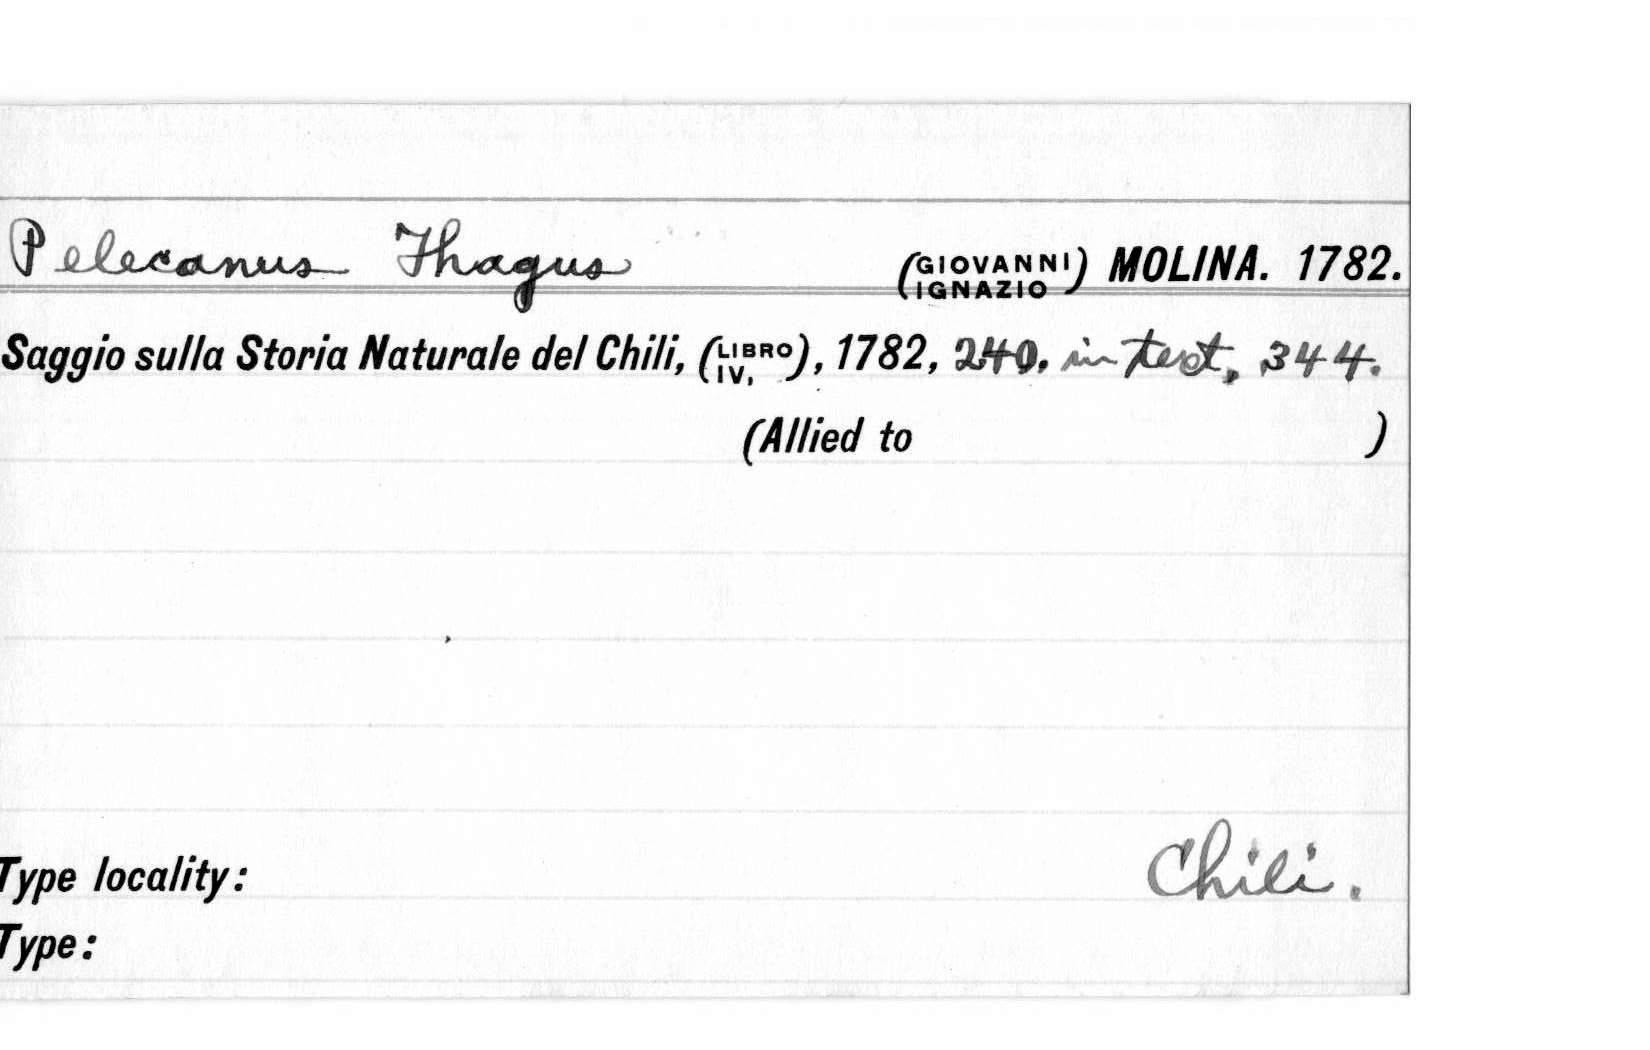 Pelecanus Thagus (GIOVANNI IGNAZIO) MOLINA. 1782.
Saggio sulla Storia Naturale del Chili, (LIBRO IV,), 1782, 240. in text, 344.
(Allied to )
Type locality: Chili.
Type: